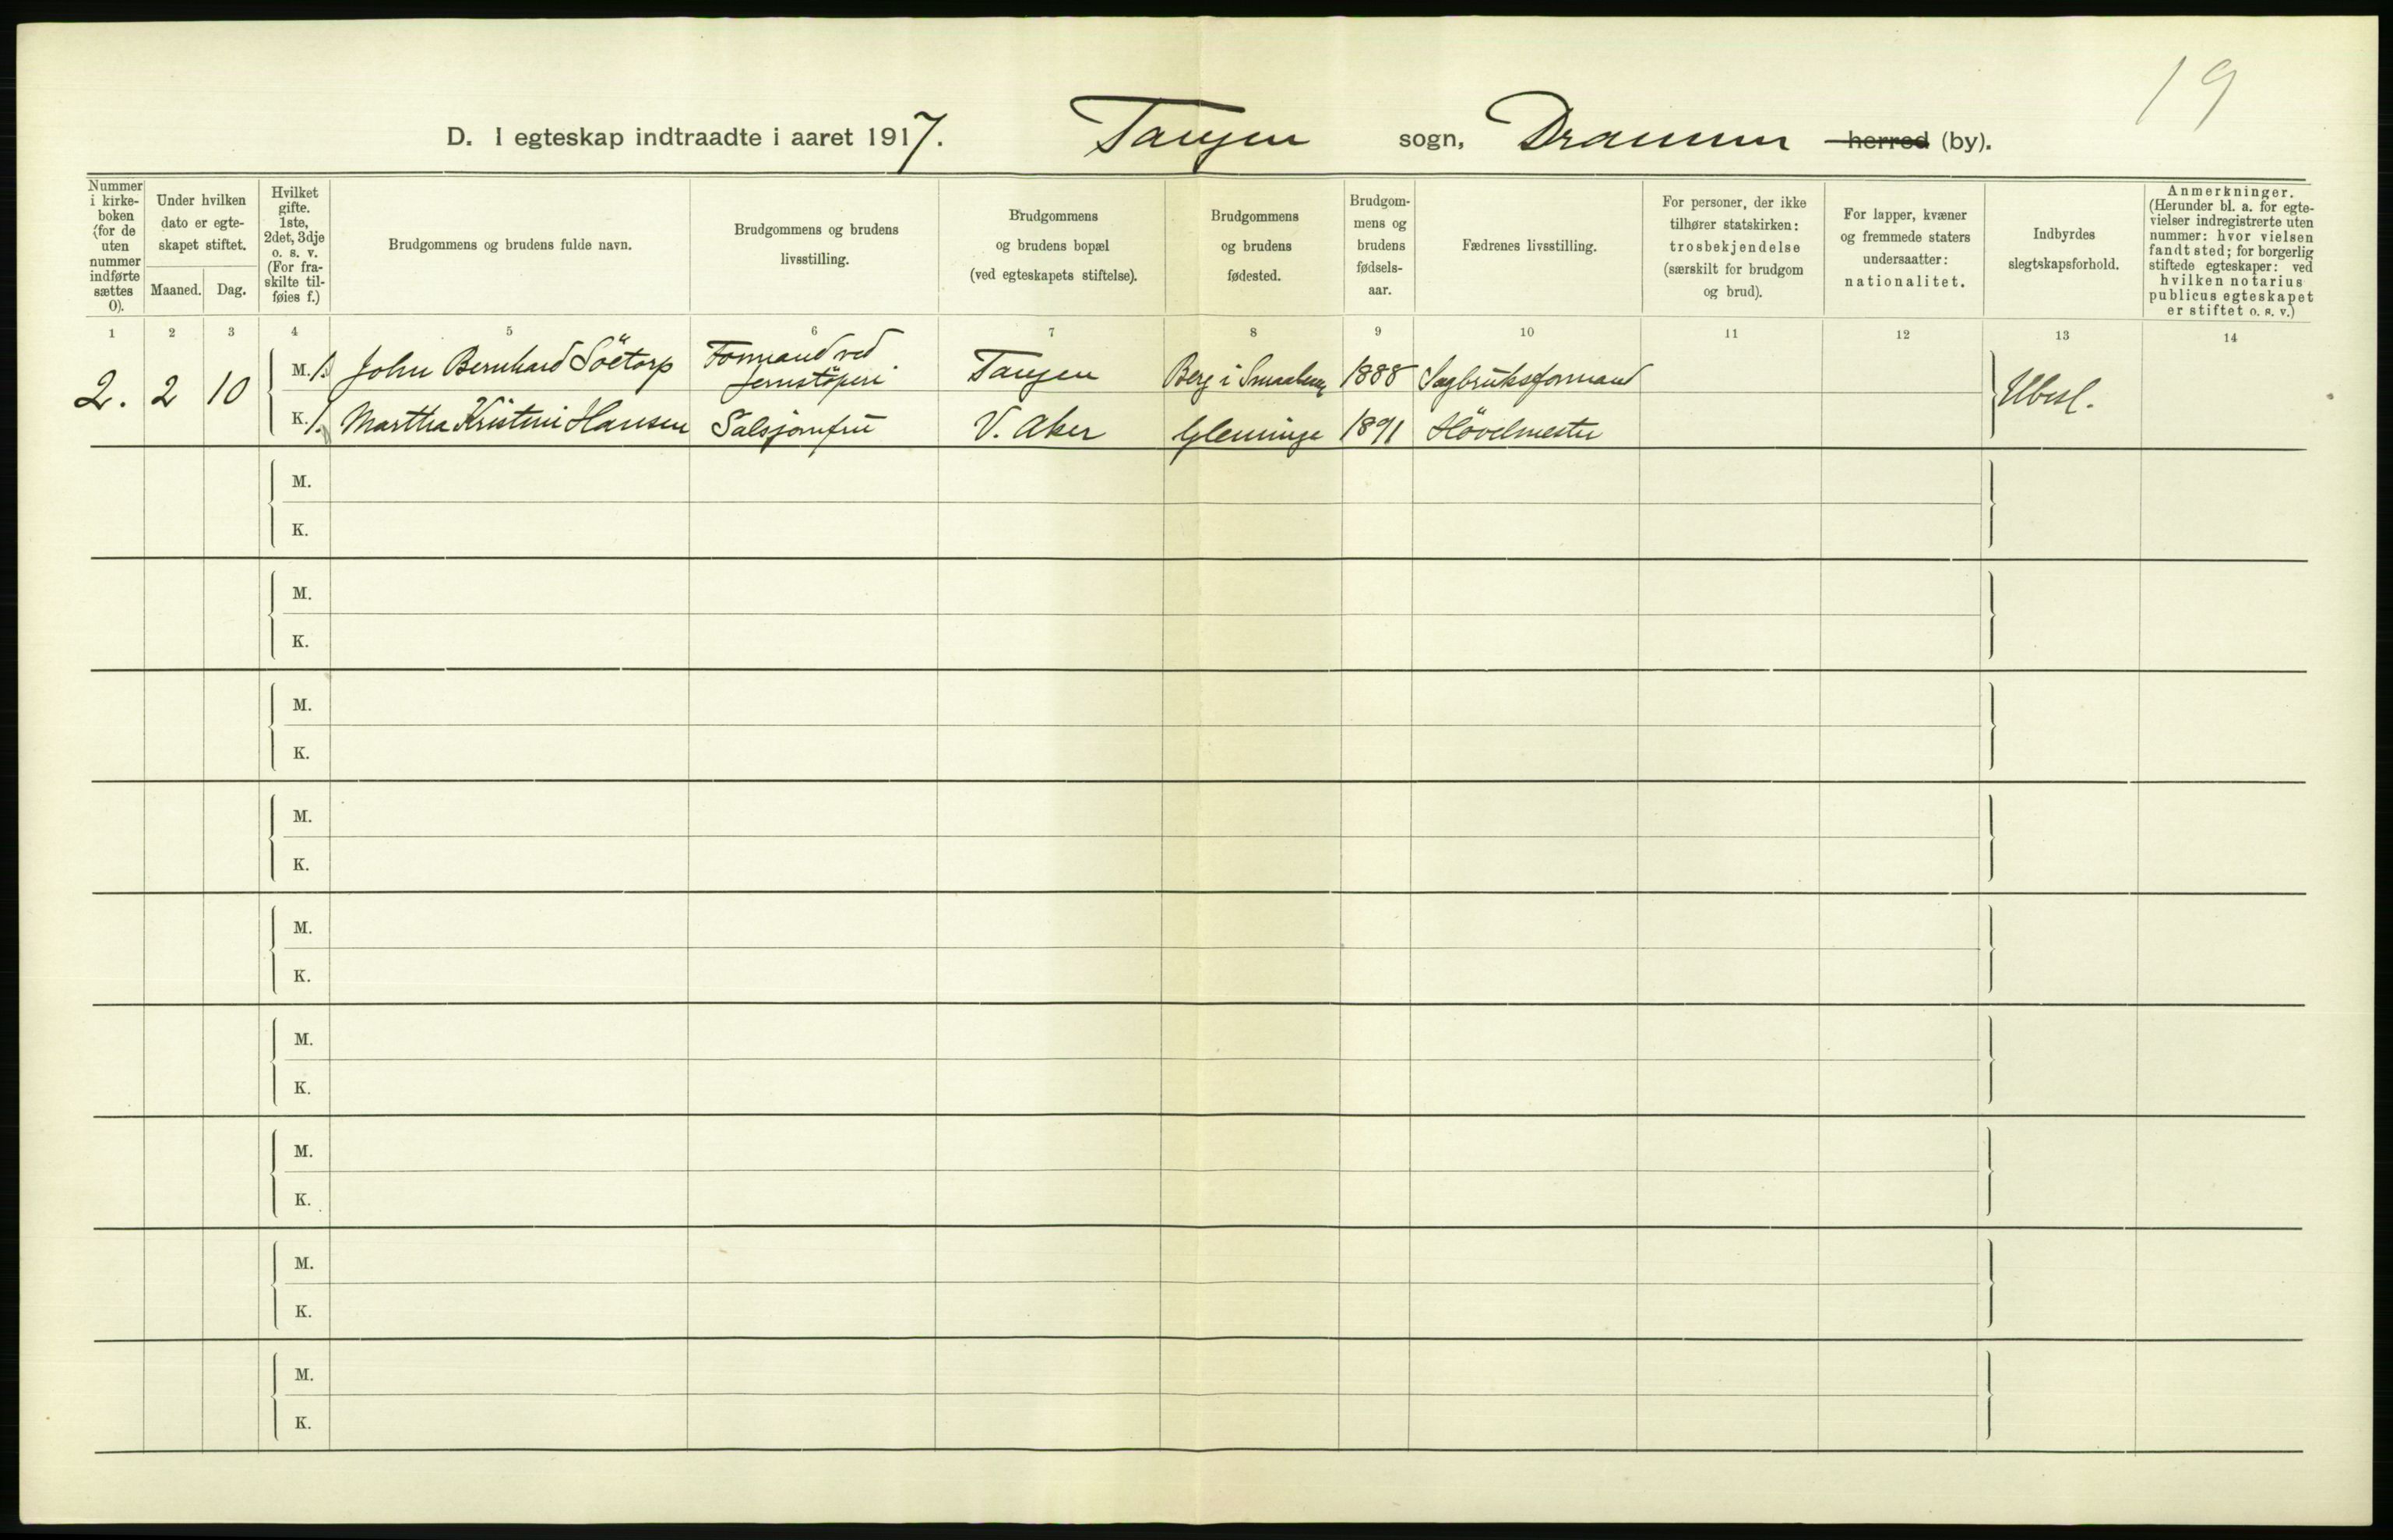 19
D. I egteskap indtraadte i aaret 1917. Tangen sogn, Drammen herred (by).
Nummer i kirke-boken (for de uten nummer indførte sættes 0).
Under hvilken dato er egte-skapet stiftet.
Maaned. Dag.
Hvilket gifte. 1ste, 2det, 3dje o. s. v. (For fra-skilte til-føies f.)
Brudgommens og brudens fulde navn.
Brudgommens og brudens livsstilling.
Brudgommens og brudens bopæl (ved egteskapets stiftelse).
Brudgommens og brudens fødested.
Brudgom-mens og brudens fødsels-aar.
Fædrenes livsstilling.
For personer, der ikke tilhører statskirken: trosbekjendelse (særskilt for brudgom og brud).
For lapper, kvæner og fremmede staters undersaatter: nationalitet.
Indbyrdes slegtskapsforhold.
Anmerkninger. (Herunder bl. a. for egte-vielser indregistrerte uten nummer: hvor vielsen fandt sted; for borgerlig stiftede egteskaper: ved hvilken notarius publicus egteskapet er stiftet o. s. v.)
1 2 3 4 5 6 7 8 9 10 11 12 13 14
2. 2 10 M. 1. John Bernhard Söetorp Formand ved jernstöperi Tangen Berg i Smaalenene 1888 Sagbruksformand Ubesl.
K. 1. Martha Kristine Hansen Salsjomfru V. Aker Glemminge 1891 Hövelmester
M.
K.
M.
K.
M.
K.
M.
K.
M.
K.
M.
K.
M.
K.
M.
K.
M.
K.